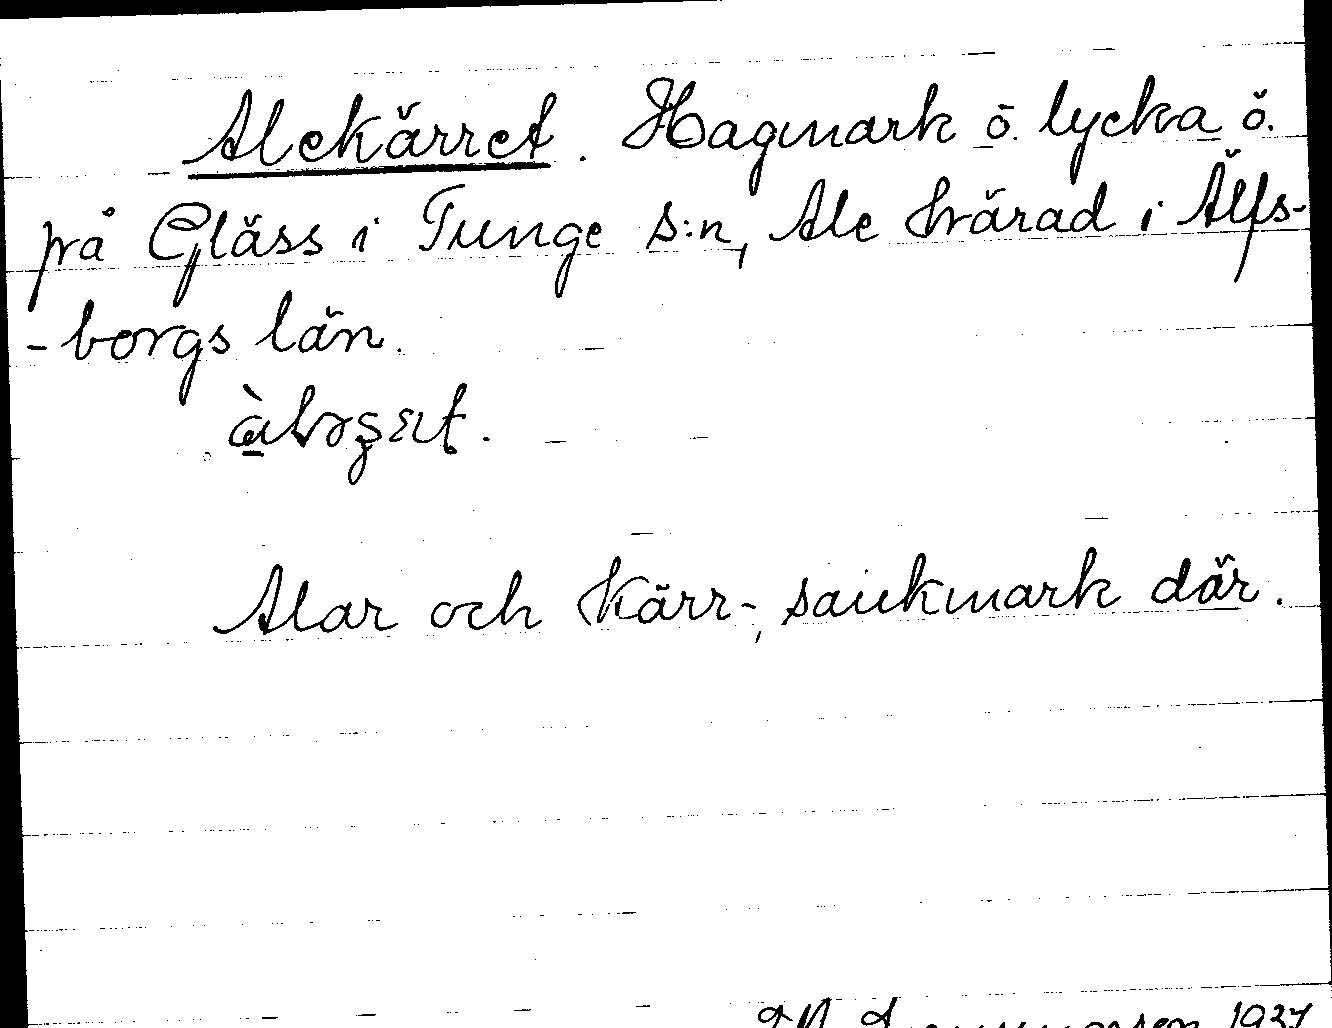 Alekärret. Hagmark ö. lycka ö.
på Gläss i Tunge s:n, Ale härad i Älfs-
-borgs län.
Alar och kärr-, sankmark där.
1937